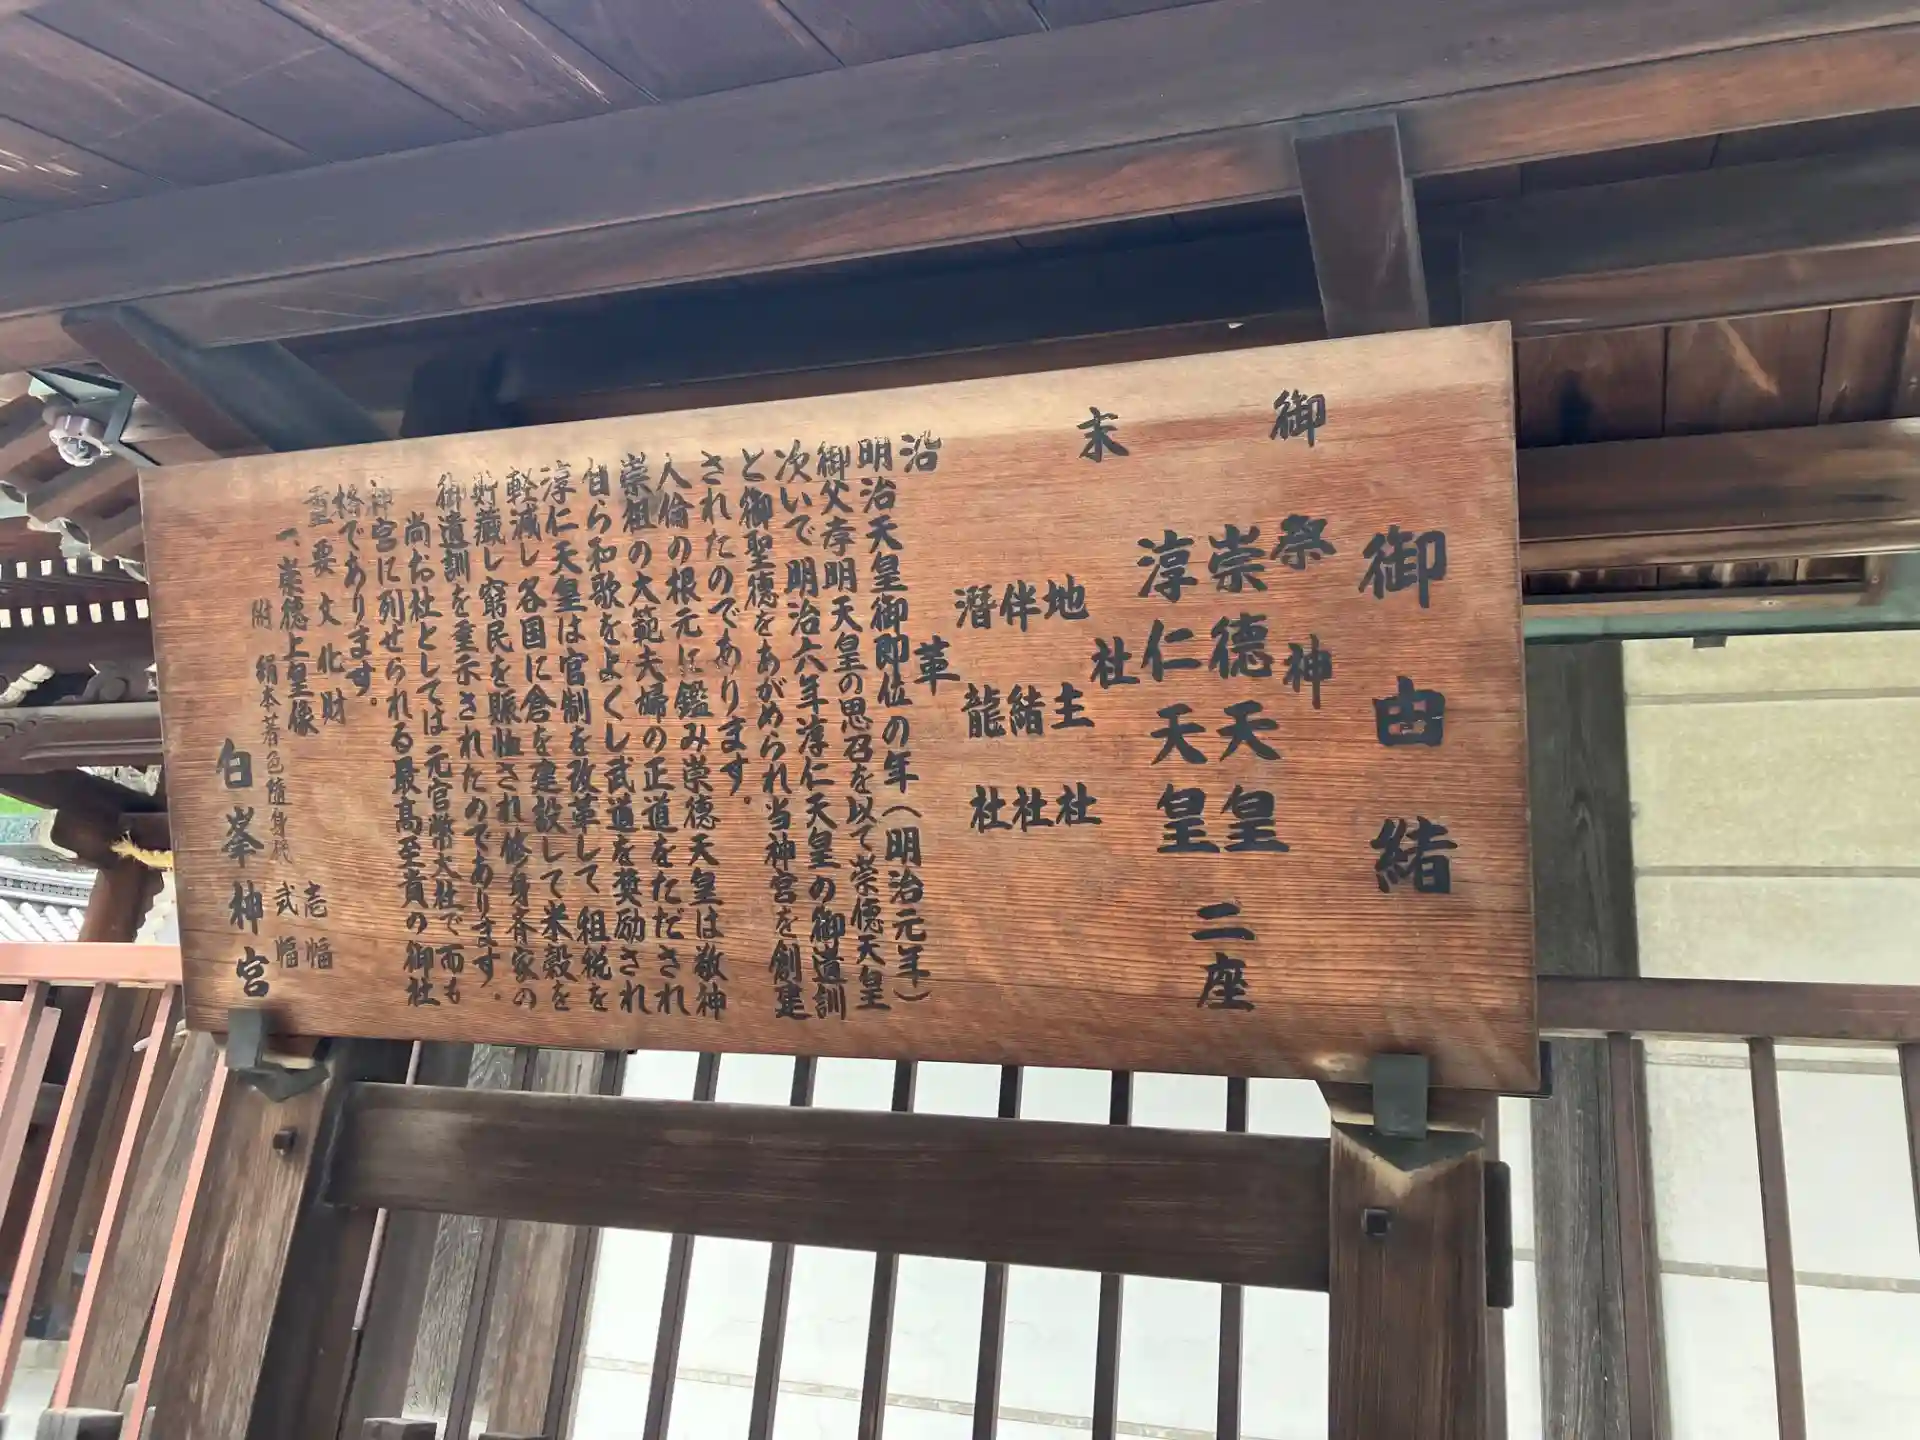 御由緒
御祭神
崇徳天皇
淳仁天皇
二座
末社
地主社
伴緒社
潜龍社
沿革
明治天皇御即位の年（明治元年）
御父孝明天皇の思召を以て崇徳天皇
次いで明治六年淳仁天皇の御遺訓
と御聖徳をあがめられ当神宮を創建
されたのであります。
人倫の根元に鑑み崇徳天皇は敬神
崇祖の大範夫婦の正道をただされ
自ら和歌をよくし武道を奨励され
淳仁天皇は官制を改革して租税を
軽減し各国に倉を建設して米穀を
貯蔵し窮民を賑恤され修身斉家の
御遺訓を垂示されたのであります。
尚お社としては元官幣大社で而も
神宮に列せられる最高至貴の御社
格であります。
重要文化財
一、崇徳上皇像 壱幅
附 絹本著色随身像 弐幅
白峯神宮